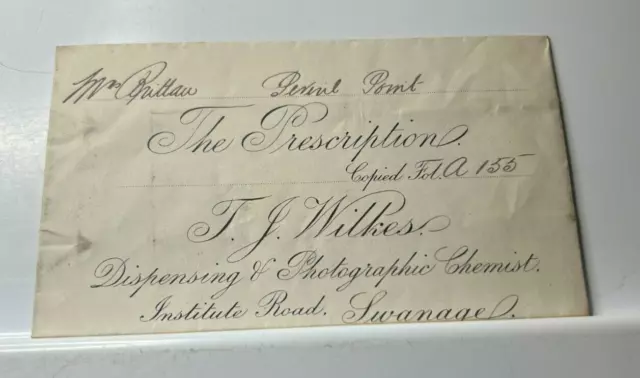 Mrs Brittan Peveril Point
The Prescription.
Copied Fol. A 155
T. J. Wilkes.
Dispensing & Photographic Chemist.
Institute Road. Swanage.